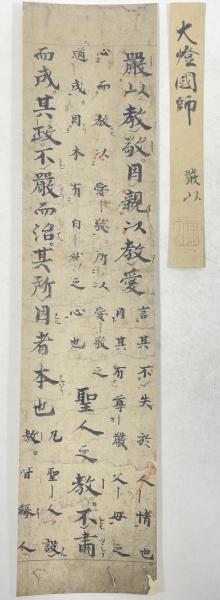 大燈國師
嚴以
嚴以教敬因親以教愛
言其不失於人情也。
因其有尊嚴父母之
心而教以愛敬所以愛敬之
道成因本有自然之心也
聖人之教。不肅
而成其政不嚴而治。其所因者本也
凡聖人設
教。皆縁人